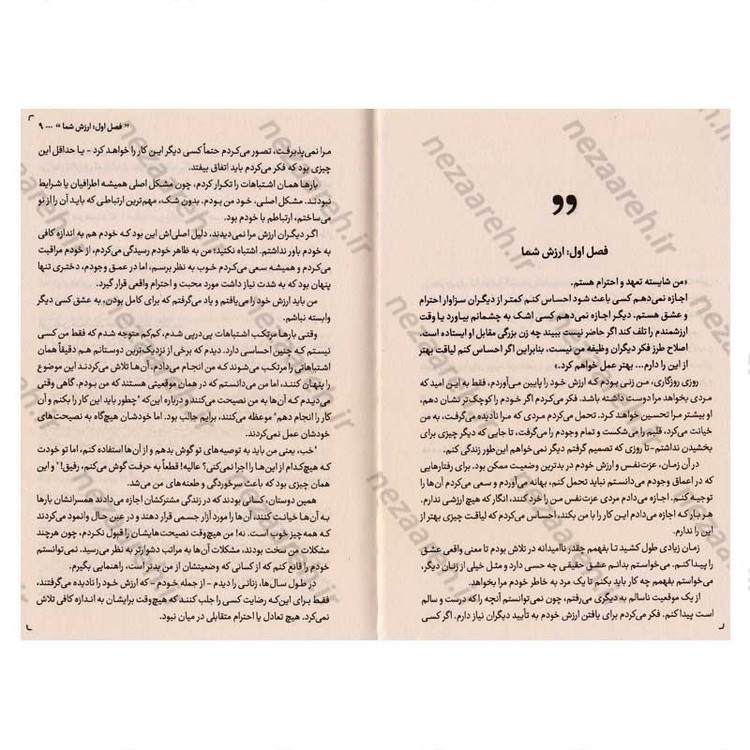 ”
فصل اول: ارزش شما
«من شایسته تعهد و احترام هستم.
اجازه نمی‌دهم کسی باعث شود احساس کنم کمتر از دیگران سزاوار احترام
و عشق هستم. دیگر اجازه نمی‌دهم کسی اشک به چشمانم بیاورد یا وقت
ارزشمندم را تلف کند اگر حاضر نیست ببیند چه زن بزرگی مقابل او ایستاده است.
اصلاح طرز فکر دیگران وظیفه من نیست، بنابراین اگر احساس کنم لیاقت بهتر
از این را دارم... بهتر عمل خواهم کرد.»
روزی روزگاری، من زنی بودم که ارزش خود را پایین می‌آوردم، فقط به این امید که
مردی بخواهد مرا دوست داشته باشد. فکر می‌کردم اگر خودم را کوچک‌تر نشان دهم،
او بیشتر مرا تحسین خواهد کرد. تحمل می‌کردم مردی که مرا نادیده می‌گرفت، به من
خیانت می‌کرد، قلبم را می‌شکست و تمام وجودم را می‌گرفت، تا جایی که دیگر چیزی برای
بخشیدن نداشتم-تا روزی که تصمیم گرفتم دیگر نمی‌خواهم این‌طور زندگی کنم.
در آن زمان، عزت‌نفس و ارزش خودم در بدترین وضعیت ممکن بود. برای رفتارهایی
که در اعماق وجودم می‌دانستم نباید تحمل کنم، بهانه می‌آوردم و سعی می‌کردم آن‌ها را
توجیه کنم. اجازه می‌دادم مردی عزت‌نفس من را خرد کند، انگار که هیچ ارزشی ندارم.
هر بار که اجازه می‌دادم این کار را با من بکند، احساس می‌کردم که لیاقت چیزی بهتر از
این را ندارم.
زمان زیادی طول کشید تا بفهمم چقدر ناامیدانه در تلاش بودم تا معنی واقعی عشق
را پیدا کنم. می‌خواستم بدانم عشق حقیقی چه حسی دارد و مثل خیلی از زنان دیگر،
می‌خواستم بفهمم چه کار باید بکنم تا یک مرد به خاطر خودم مرا بخواهد.
از یک موقعیت ناسالم به دیگری می‌رفتم، چون نمی‌توانستم آنچه را که درست و سالم
است پیدا کنم. فکر می‌کردم برای یافتن ارزش خودم به تأیید دیگران نیاز دارم. اگر کسی
“ فصل اول: ارزش شما ” ... ۹
مرا نمی‌پذیرفت، تصور می‌کردم حتماً کسی دیگر این کار را خواهد کرد - یا حداقل این
چیزی بود که فکر می‌کردم باید اتفاق بیفتد.
بارها همان اشتباهات را تکرار کردم، چون مشکل اصلی همیشه اطرافیان یا شرایط
نبودند. مشکل اصلی، خود من بودم. بدون شک، مهم‌ترین ارتباطی که باید آن را از نو
می‌ساختم، ارتباطم با خودم بود.
اگر دیگران ارزش مرا نمی‌دیدند، دلیل اصلی‌اش این بود که خودم هم به اندازه کافی
به خودم باور نداشتم. اشتباه نکنید؛ من به ظاهر خودم رسیدگی می‌کردم، از خودم مراقبت
می‌کردم و همیشه سعی می‌کردم خوب به نظر برسم، اما در عمق وجودم، دختری تنها
پنهان بود که به شدت نیاز داشت مورد محبت و احترام واقعی قرار گیرد.
من باید ارزش خودم را می‌یافتم و یاد می‌گرفتم که برای کامل بودن، به عشق کسی دیگر
وابسته نباشم.
وقتی بارها مرتکب اشتباهات پی‌درپی شدم، کم‌کم متوجه شدم که فقط من کسی
نیستم که چنین احساسی دارد. دیدم که برخی از نزدیک‌ترین دوستانم هم دقیقاً همان
اشتباهاتی را مرتکب می‌شوند که من انجام می‌دادم. آن‌ها تلاش می‌کردند این موضوع
را پنهان کنند، اما من می‌دانستم که در همان موقعیتی هستند که من بودم. گاهی وقتی
می‌دیدم که آن‌ها به من نصیحت می‌کنند و درباره این‌که "چطور باید این کار را بکنم و آن
کار را انجام دهم" موعظه می‌کنند، برایم جالب بود. اما خودشان هیچ‌گاه به نصیحت‌های
خودشان عمل نمی‌کردند.
'خب، یعنی من باید به توصیه‌های تو گوش بدهم و از آن‌ها استفاده کنم، اما تو خودت
هیچ‌کدام از این‌ها را اجرا نمی‌کنی؟ عالیه! قطعاً به حرفت گوش می‌کنم، رفیق!' و این
همان چیزی بود که باعث سرخوردگی و طعنه‌های من می‌شد.
همین دوستان، کسانی بودند که در زندگی مشترکشان اجازه می‌دادند همسرانشان بارها
به آن‌ها خیانت کنند، آن‌ها را مورد آزار جسمی قرار دهند و در عین حال وانمود می‌کردند
که همه‌چیز خوب است. نه! من هیچ‌وقت نصیحت‌هایشان را قبول نکردم، چون هرچند
مشکلات من سخت بودند، مشکلات آن‌ها به مراتب دشوارتر به نظر می‌رسید. نمی‌توانم
خودم را قانع کنم که از کسانی که وضعیتشان از من بدتر است، راهنمایی بگیرم.
در طول سال‌ها، زنانی را دیدم - از جمله خودم - که ارزش خود را نادیده می‌گرفتند،
فقط برای این‌که رضایت کسی را جلب کنند که هیچ‌وقت برایشان به اندازه کافی تلاش
نمی‌کرد. هیچ تعادل یا احترام متقابلی در میان نبود.
nezaareh.ir